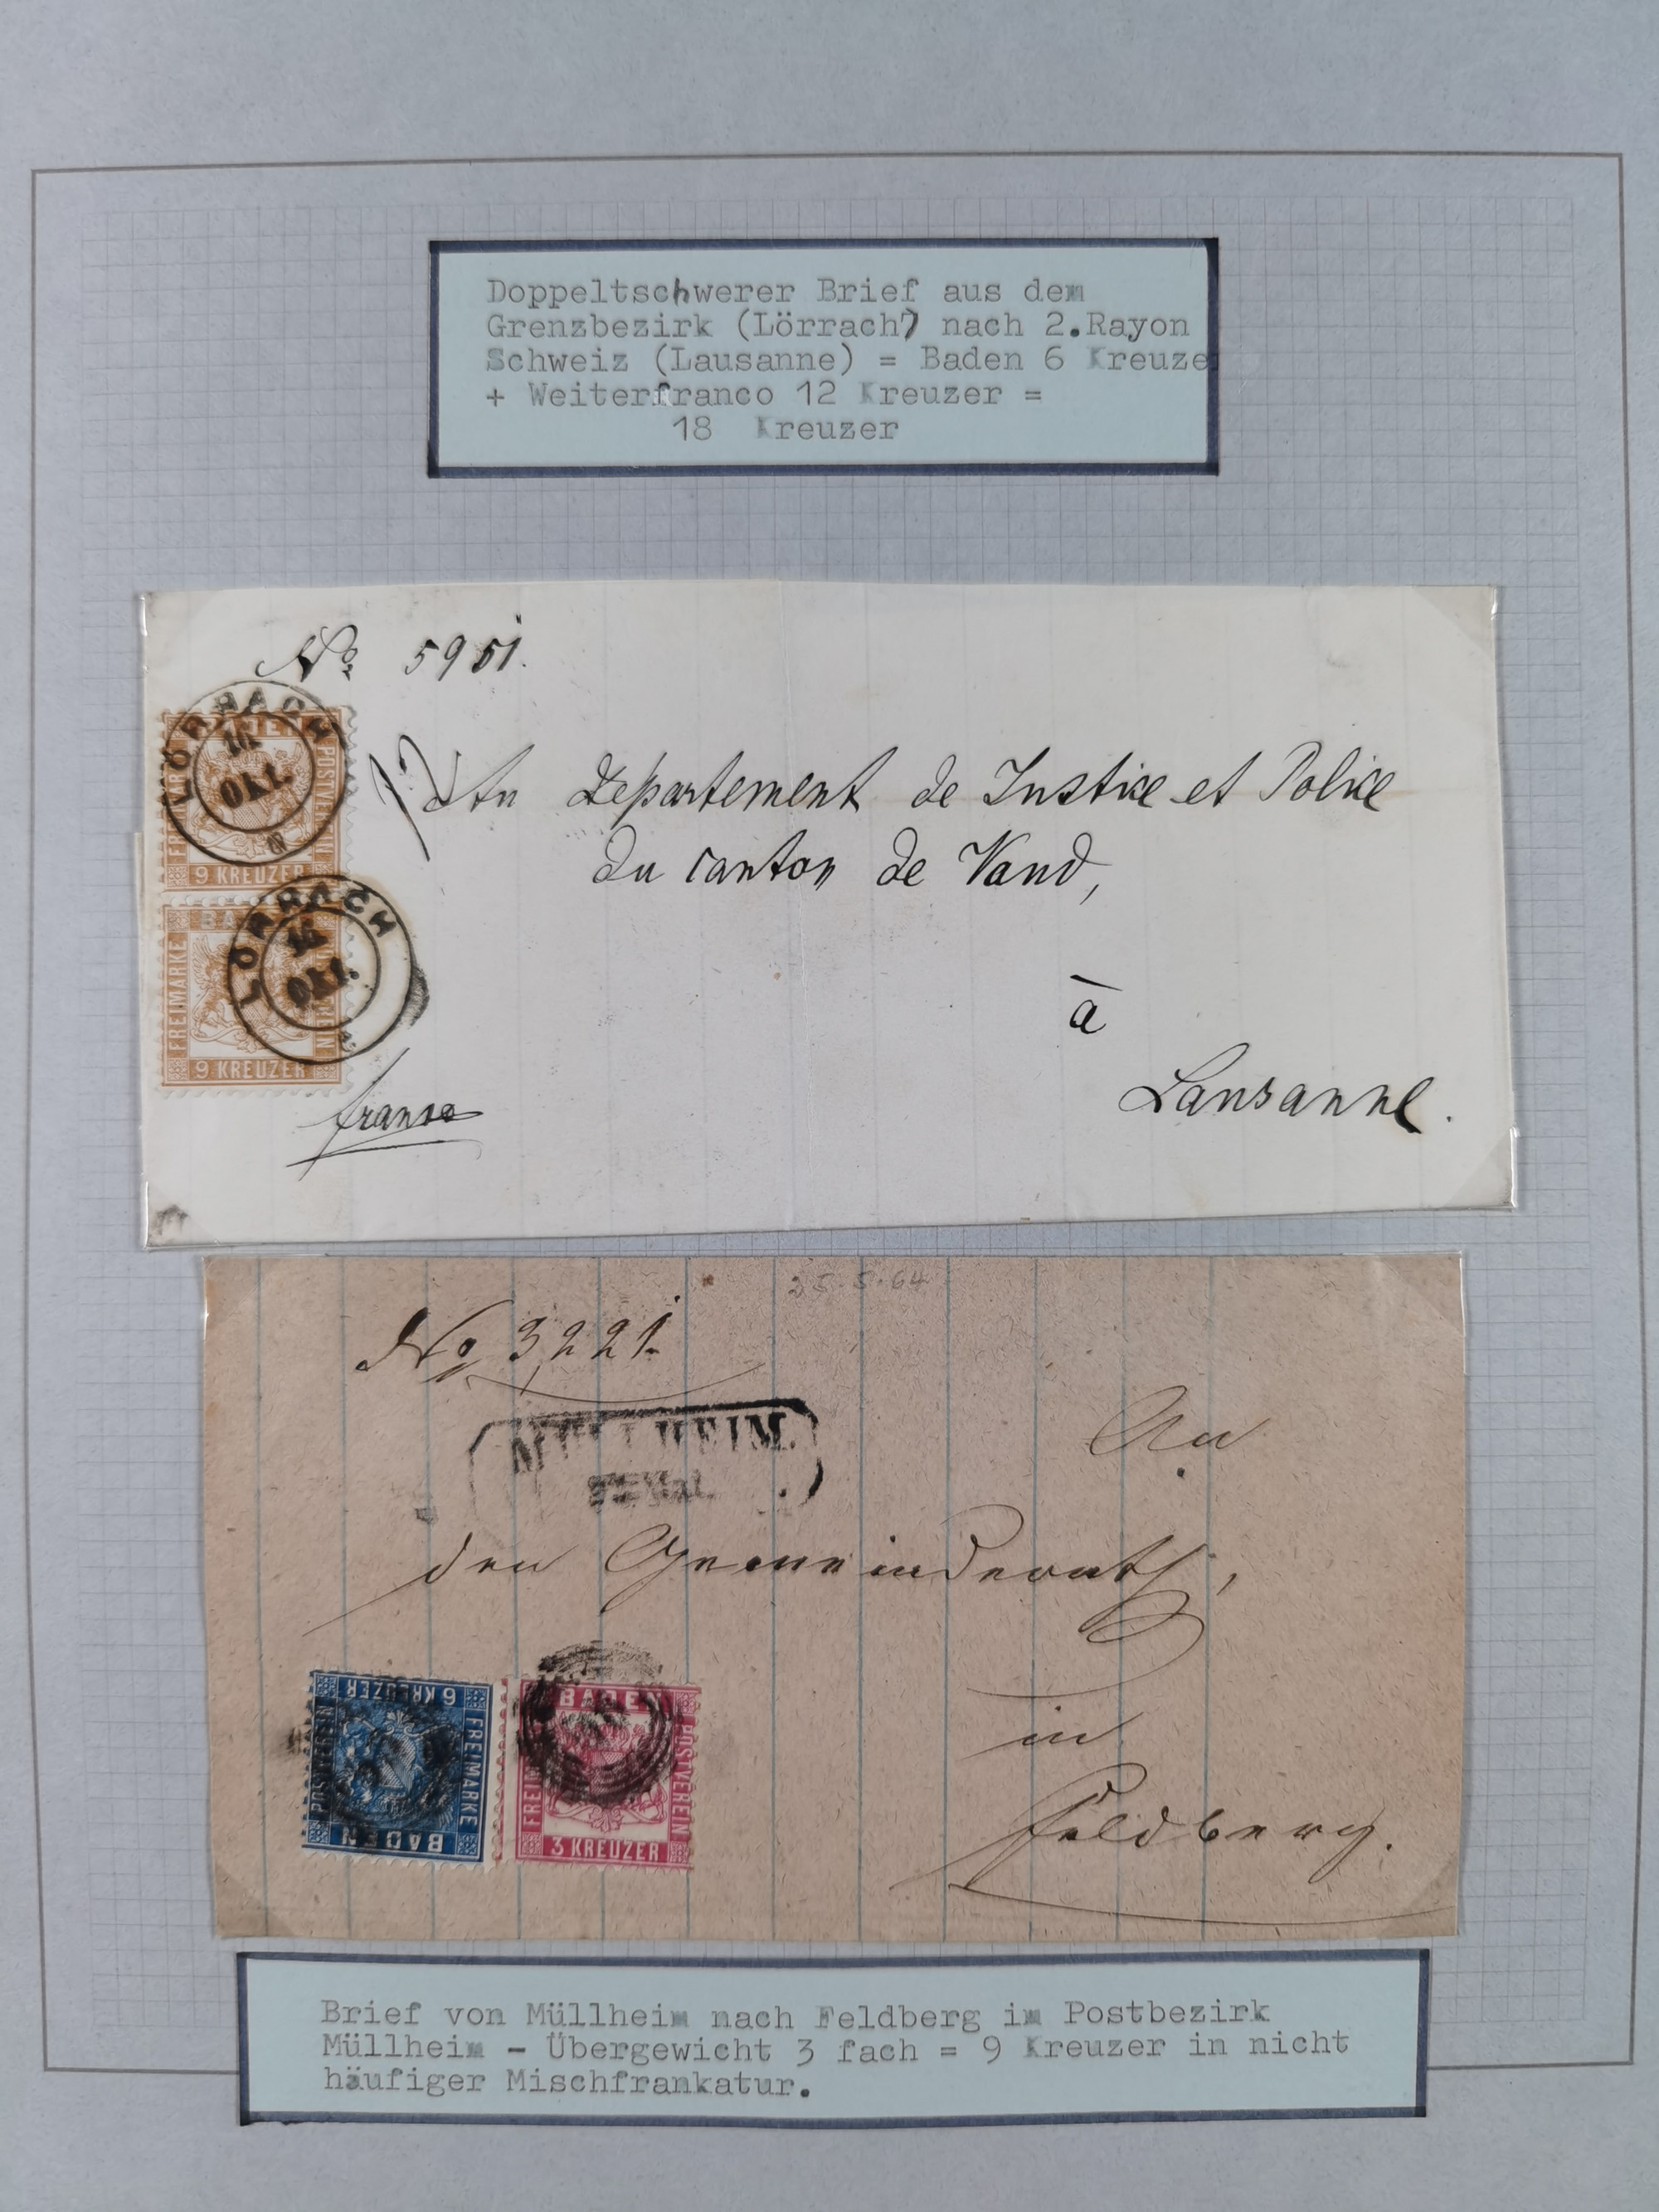 Doppeltschwerer Brief aus dem
Grenzbezirk (Lörrach) nach 2.Rayon
Schweiz (Lausanne) = Baden 6 Kreuze
+ Weiterfranco 12 Kreuzer =
18 Kreuzer
No. 5951.
LÖRRACH
16
Okt.
POSTVEREIN
9 KREUZER
An Departement de Justice et Police
du canton de Vaud,
LÖRRACH
16
Okt.
FREIMARKE
9 KREUZER
à
Lausanne.
franco
25.5.64
No 3221.
MÜLLHEIM.
An
den Gemeinderath,
6 KREUZER
FREIMARKE
POSTVEREIN
BADEN
BADEN
POSTVEREIN
3 KREUZER
in
Feldberg.
Brief von Müllheim nach Feldberg im Postbezirk
Müllheim - Übergewicht 3 fach = 9 Kreuzer in nicht
häufiger Mischfrankatur.